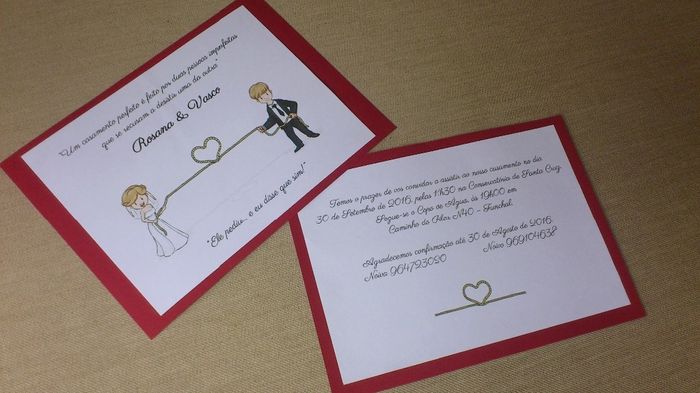 "Um casamento perfeito é feito por duas pessoas imperfeitas
que se recusam a desistir uma da outra"
Rosana & Vasco
"Ele pediu... e eu disse que sim!"
Temos o prazer de vos convidar a assistir ao nosso casamento no dia
30 de Setembro de 2016, pelas 17h30 na Conservatória de Santa Cruz
Segue-se o Copo de Água, às 19h00 em
Caminho do Pilar N40 - Funchal.
Agradecemos confirmação até 30 de Agosto de 2016.
Noiva 964723020 Noivo 969104638